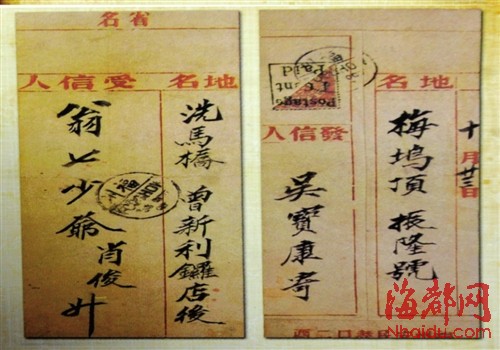 名省
人信受
名地
洗馬橋曾新利鑼店後
翁七少爺肖俊升
名地
人信發
十月廿三日
梅塢頂振隆號
吳寶康寄
Postage
1 Cent
Paid
海都网
Nhaidu.com